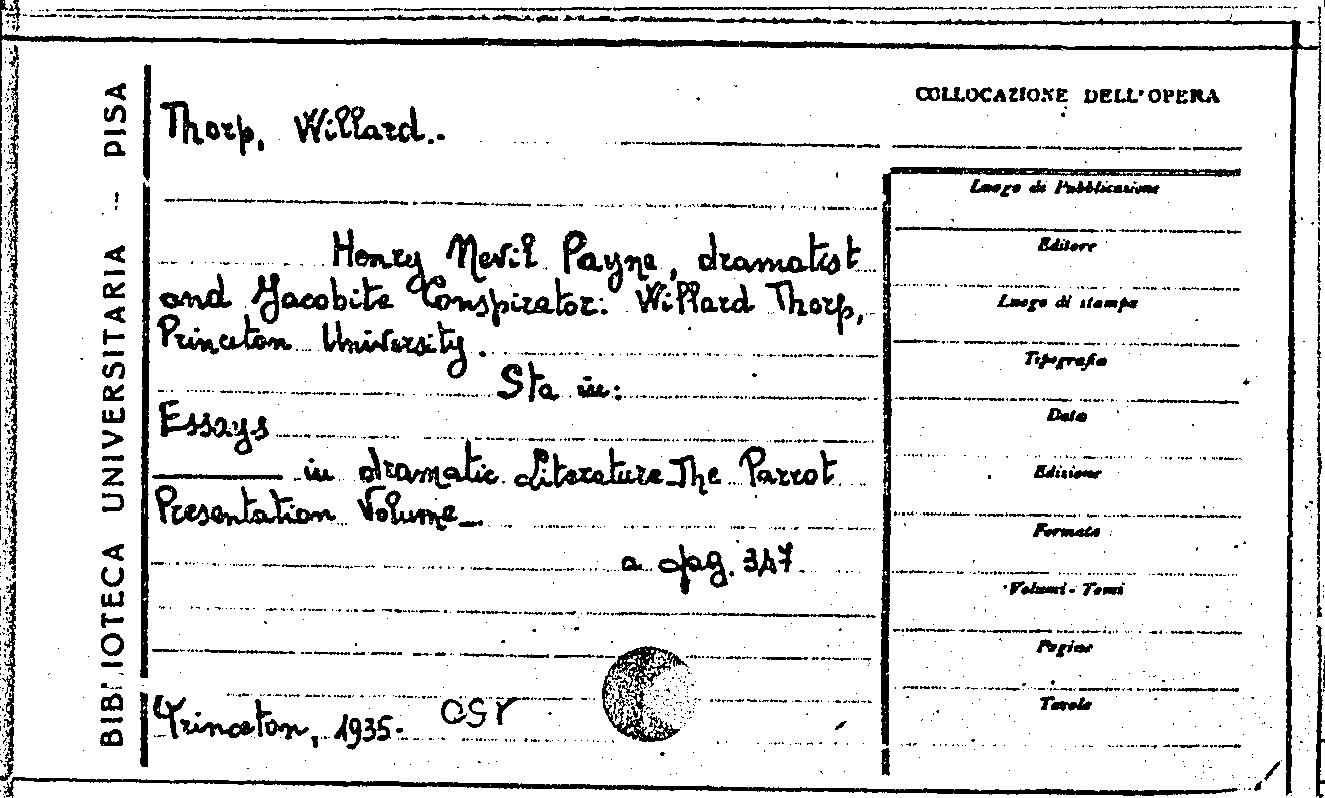 BIBLIOTECA UNIVERSITARIA - PISA
COLLOCAZIONE DELL'OPERA
Thorp, Willard.
Henry Nevil Payne, dramatist
and Jacobite Conspirator. Willard Thorp,
Princeton University.
Sta in:
Essays
——— in dramatic Literature_The Parrot
Presentation Volume_
a pag. 347.
Princeton, 1935-
Luogo di Pubblicazione
Editore
Luogo di stampa
Tipografia
Data
Edizione
Formato
Volumi - Tomi
Pagine
Tavole